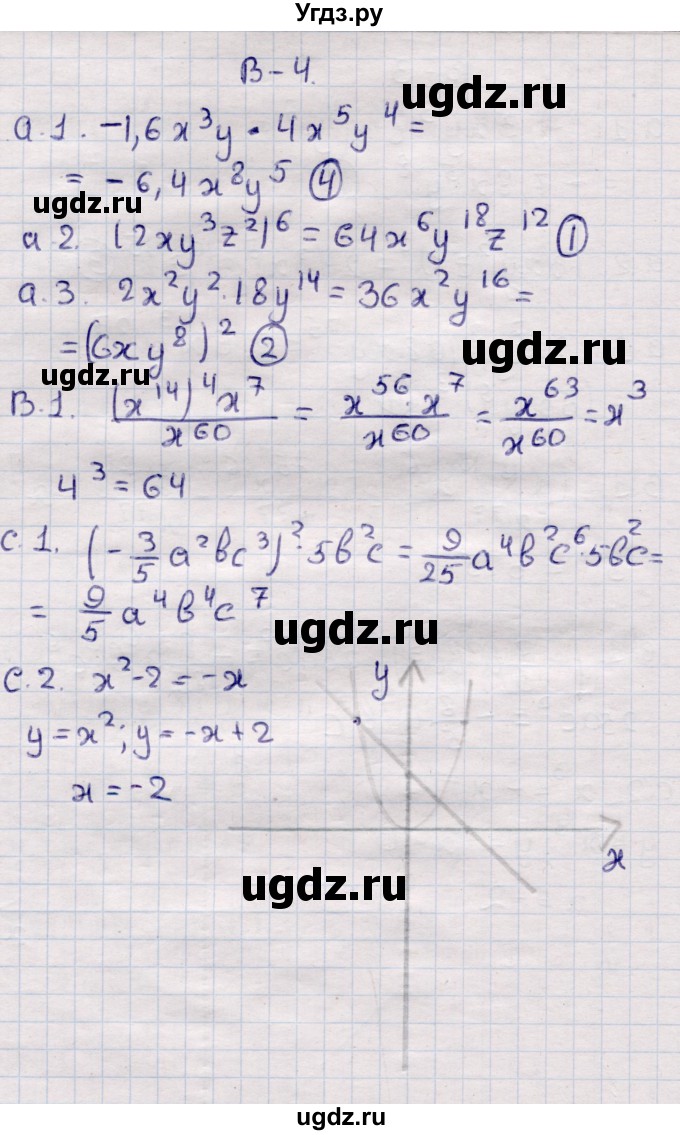 Угдз.ру
В-4.
а.1. -1,6x³y · 4x⁵y⁴ =
ugdz.ru
= -6,4x⁸y⁵ ④
ugdz.ru
а.2. (2xy³z²)⁶ = 64x⁶y¹⁸z¹² ①
а.3. 2x²y² · 18y¹⁴ = 36x²y¹⁶ =
= (6xy⁸)² ②
ugdz.ru
ugdz.ru
В.1. (x¹⁴)⁴x⁷/x⁶⁰ = x⁵⁶·x⁷/x⁶⁰ = x⁶³/x⁶⁰ = x³
4³ = 64
С.1. (-3/5 a²bc³)² · 5b²c = 9/25 a⁴b²c⁶·5b²c =
= 9/5 a⁴b⁴c⁷
ugdz.ru
С.2. x²-2 = -x
y
y = x²; y = -x+2
x = -2
x
ugdz.ru
ugdz.ru